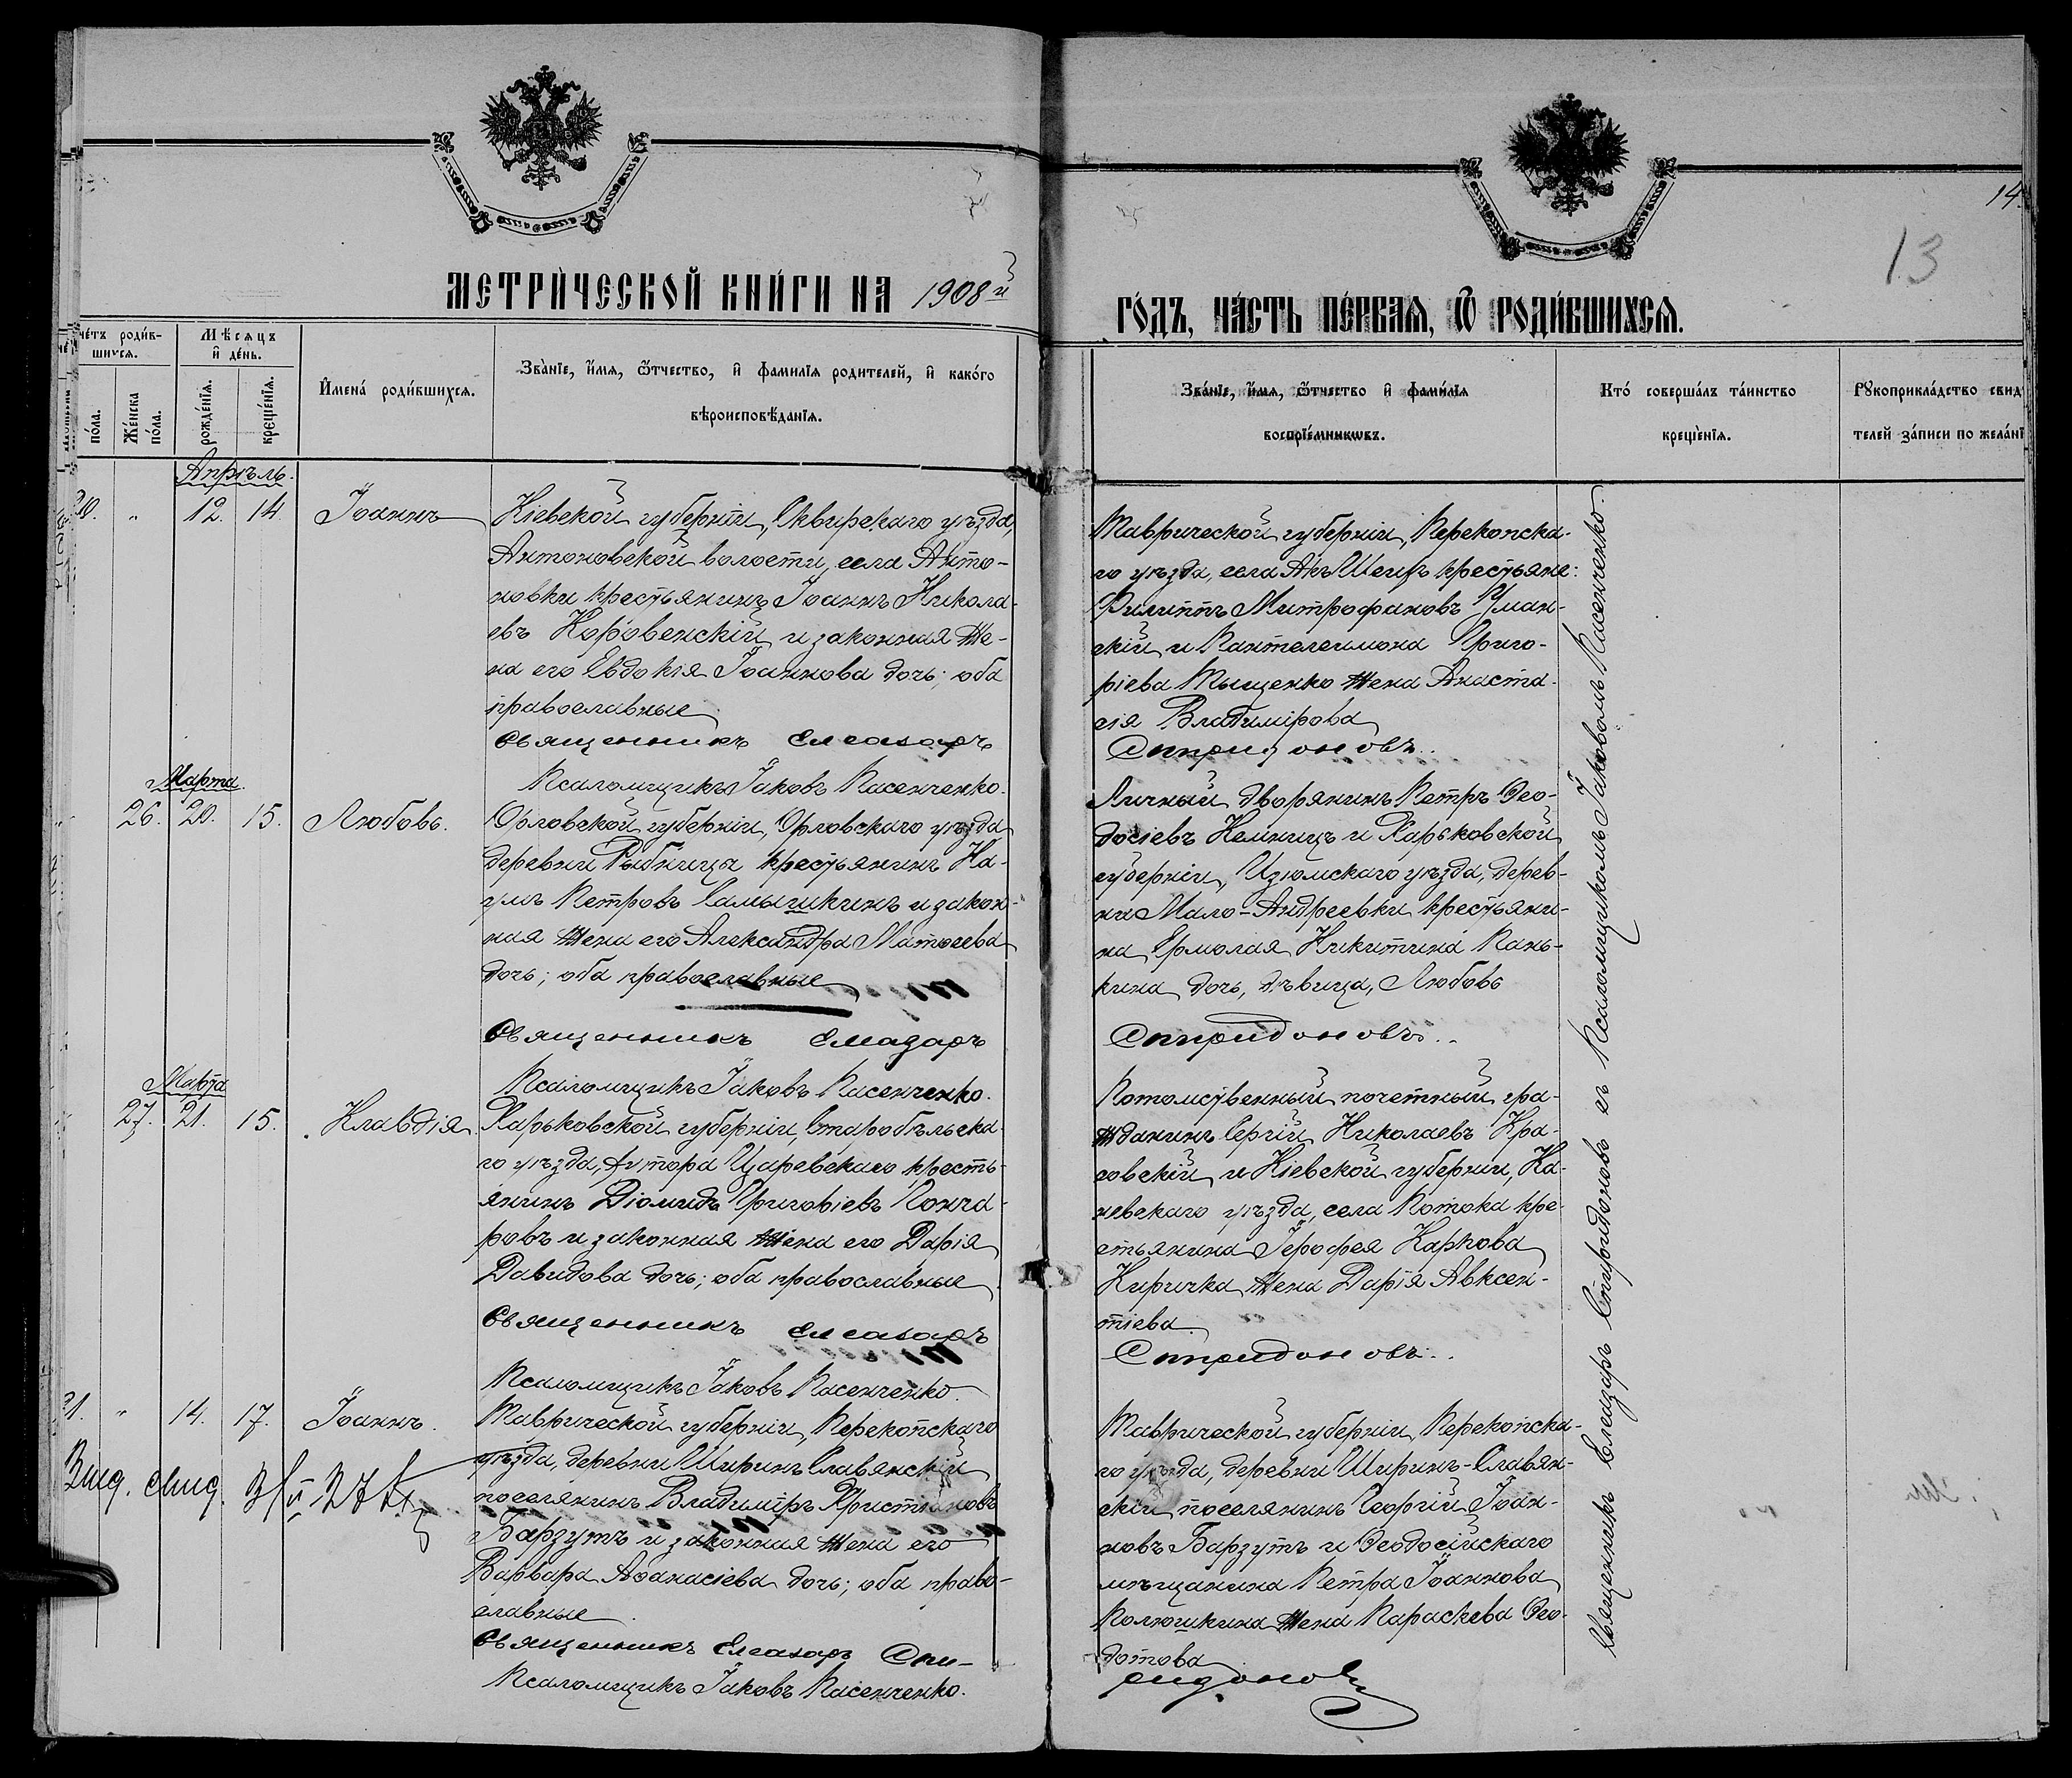 14.
13
МЕТРИЧЕСКОЙ КНИГИ НА 1908й
ГОДЪ, ЧАСТЬ ПЕРВАЯ, Ѿ РОДИВШИХСЯ.
четъ родив-
шихся.
пола.
Женска
пола.
Мѣсяцъ
и день.
рожденія.
крещенія.
Имена родившихся.
Званіе, имя, ѿчество, и фамилія родителей, и какого
вѣроисповѣданія.
Званіе, имя, ѿчество и фамилія
воспріемникѡвъ.
Кто совершалъ таинство
крещенія.
Рукоприкладство свид
телей записи по желані
Апрѣль.
20. " 12. 14. Іоаннъ
Кіевской губерніи, Сквирскаго уѣзда,
Антоновской волости, села Анто-
новки крестьянинъ Іоаннъ Никола-
евъ Коровенскій и законная же-
на его Евдокія Іоаннова дочь; оба
православные
Священникъ Елеазаръ
Псаломщикъ Іаковъ Пасенченко.
Таврической губерніи, Перекопска-
го уѣзда, села Акъ Шеихъ крестьяне:
Филиппъ Митрофановъ Уман-
скій и Пантелеимона Григо-
ріева Тыщенко жена Анаста-
сія Владимірова
Спиридоновъ.
Марта.
26. 20. 15. Любовь.
Орловской губерніи, Орловскаго уѣзда
деревни Рыбницы крестьянинъ На-
умъ Петровъ Самышкинъ и закон-
ная жена его Александра Матѳеева
дочь; оба православные
Священникъ Елеазаръ
Псаломщикъ Іаковъ Пасенченко.
Личный дворянинъ Петръ Ѳео-
досіевъ Немницъ и Харьковской
губерніи, Изюмскаго уѣзда, дерев-
ни Мало-Андреевки крестьяни-
на Ермолая Никитина Пань-
кина дочь, дѣвица, Любовь
Спиридоновъ.
Марта
27. 21. 15. Клавдія
Харьковской губерніи, Старобѣльска-
го уѣзда, хутора Царевскаго кресть-
янинъ Діомидъ Григоріевъ Гонча-
ровъ и законная жена его Дарія
Давидова дочь; оба православные
Священникъ Елеазаръ
Псаломщикъ Іаковъ Пасенченко.
Потомственный почетный гра-
жданинъ Сергій Николаевъ Кра-
совскій и Кіевской губерніи, Ка-
невскаго уѣзда, села Потока кре-
стьянина Іероѳея Карпова
Киричка жена Дарія Авксен-
тіева.
Спиридоновъ.
31. " 14. 17. Іоаннъ.
Таврической губерніи, Перекопскаго
уѣзда, деревни Ширинъ Славянскій
поселянинъ Владиміръ Христіановъ
Барзутъ и законная жена его
Варвара Аѳанасіева дочь; оба право-
славные
Священникъ Елеазаръ Спи-
Псаломщикъ Іаковъ Пасенченко.
Таврической губерніи, Перекопска-
го уѣзда, деревни Ширинъ-Славян-
скій поселянинъ Георгій Іоан-
новъ Барзутъ и Ѳеодосійскаго
мѣщанина Петра Іоаннова
Колюшкина жена Параскева Ѳео-
дотова
ридоновъ
Священникъ Елеазаръ Спиридоновъ съ Псаломщикомъ Іаковомъ Пасенченко.